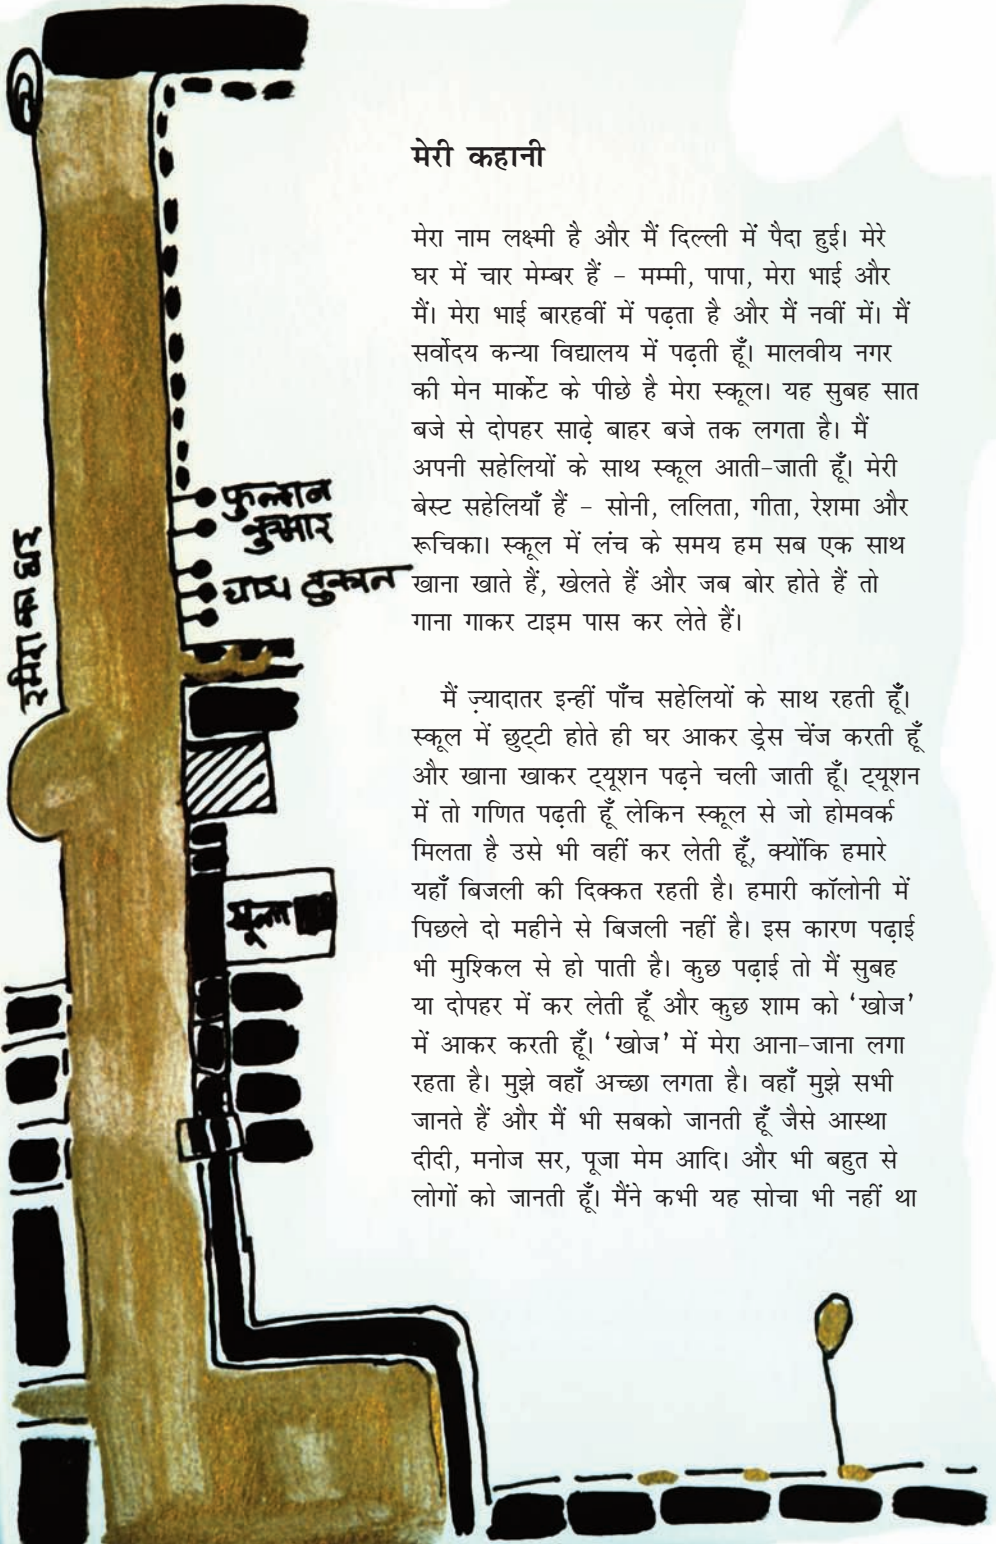 मेरी कहानी
मेरा नाम लक्ष्मी है और मैं दिल्ली में पैदा हुई। मेरे
घर में चार मेम्बर हैं – मम्मी, पापा, मेरा भाई और
मैं। मेरा भाई बारहवीं में पढ़ता है और मैं नवीं में। मैं
सर्वोदय कन्या विद्यालय में पढ़ती हूँ। मालवीय नगर
की मेन मार्केट के पीछे है मेरा स्कूल। यह सुबह सात
बजे से दोपहर साढ़े बाहर बजे तक लगता है। मैं
अपनी सहेलियों के साथ स्कूल आती-जाती हूँ। मेरी
बेस्ट सहेलियाँ हैं – सोनी, ललिता, गीता, रेशमा और
रूचिका। स्कूल में लंच के समय हम सब एक साथ
खाना खाते हैं, खेलते हैं और जब बोर होते हैं तो
गाना गाकर टाइम पास कर लेते हैं।
मैं ज़्यादातर इन्हीं पाँच सहेलियों के साथ रहती हूँ।
स्कूल में छुट्टी होते ही घर आकर ड्रेस चेंज करती हूँ
और खाना खाकर ट्यूशन पढ़ने चली जाती हूँ। ट्यूशन
में तो गणित पढ़ती हूँ लेकिन स्कूल से जो होमवर्क
मिलता है उसे भी वहीं कर लेती हूँ, क्योंकि हमारे
यहाँ बिजली की दिक्कत रहती है। हमारी कॉलोनी में
पिछले दो महीने से बिजली नहीं है। इस कारण पढ़ाई
भी मुश्किल से हो पाती है। कुछ पढ़ाई तो मैं सुबह
या दोपहर में कर लेती हूँ और कुछ शाम को ‘खोज’
में आकर करती हूँ। ‘खोज’ में मेरा आना-जाना लगा
रहता है। मुझे वहाँ अच्छा लगता है। वहाँ मुझे सभी
जानते हैं और मैं भी सबको जानती हूँ जैसे आस्था
दीदी, मनोज सर, पूजा मेम आदि। और भी बहुत से
लोगों को जानती हूँ। मैंने कभी यह सोचा भी नहीं था
का घर